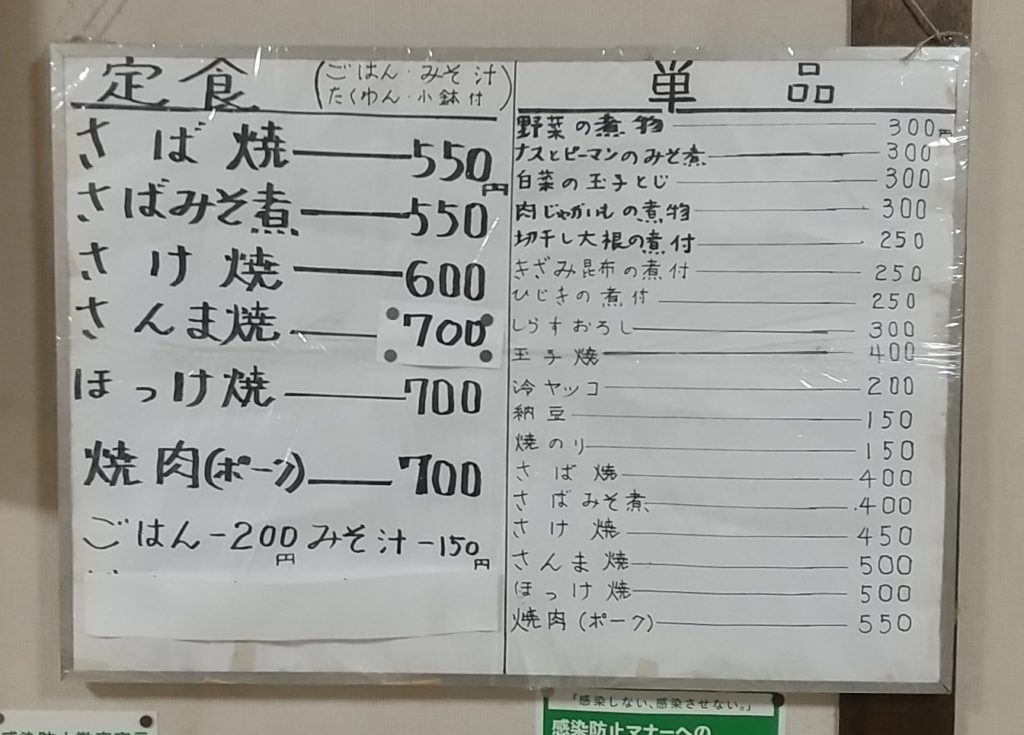 定食 (ごはん・みそ汁 たくわん・小鉢付)
さば焼 550円
さばみそ煮 550
さけ焼 600
さんま焼 700
ほっけ焼 700
焼肉(ポーク) 700
ごはん-200円 みそ汁-150円
単品
野菜の煮物 300円
ナスとピーマンのみそ煮 300
白菜の玉子とじ 300
肉じゃがいもの煮物 300
切干し大根の煮付 250
きざみ昆布の煮付 250
ひじきの煮付 250
しらすおろし 300
玉子焼 400
冷ヤッコ 200
納豆 150
焼のり 150
さば焼 400
さばみそ煮 400
さけ焼 450
さんま焼 500
ほっけ焼 500
焼肉(ポーク) 550
「感染しない、感染させない。」
感染防止マナーへの